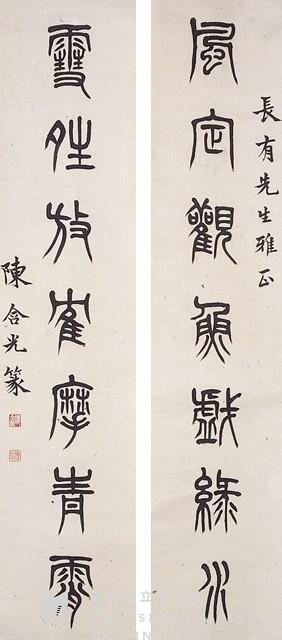 長有先生雅正
風定觀魚戲綠水
雪夝放隺摩青霄
陳含光篆